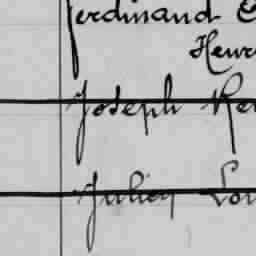 Ferdinand
Henr
Joseph Re
Julien Lou